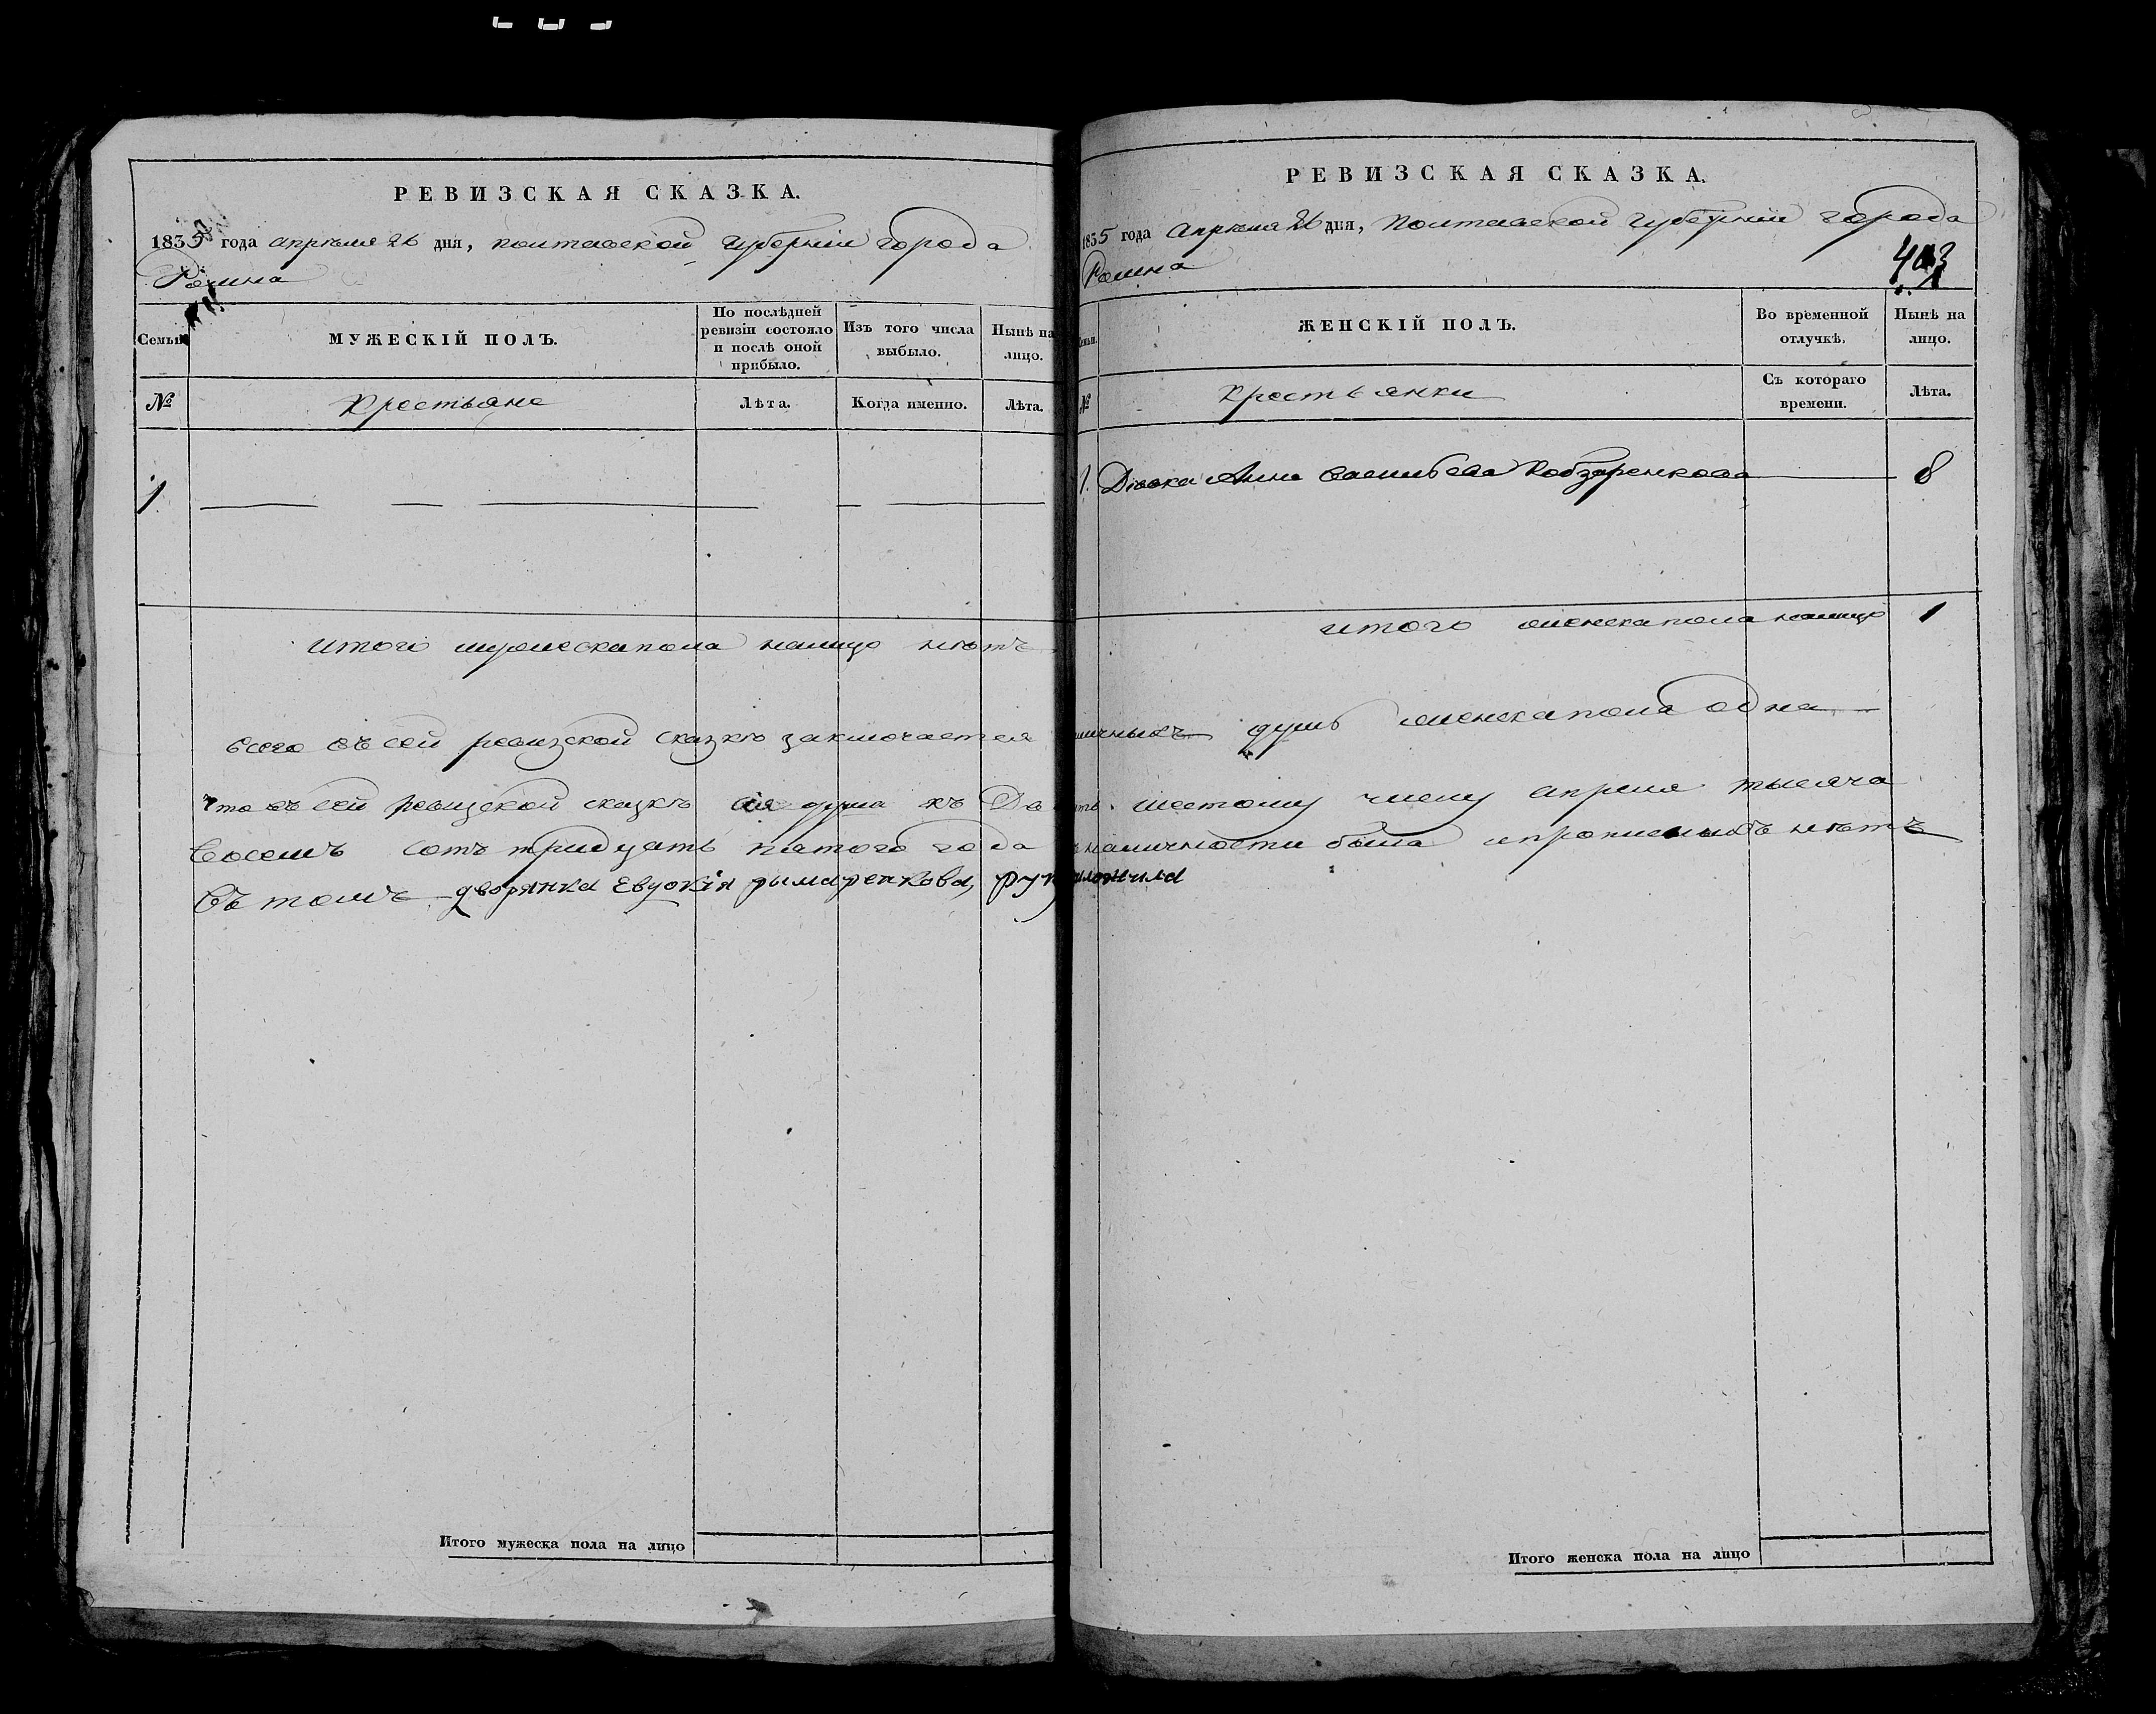 РЕВИЗСКАЯ СКАЗКА.
1835 года апреля 26 дня, Полтавской губернии города
Ромна
Семьи
МУЖЕСКІЙ ПОЛЪ.
По послѣдней ревизіи состояло и послѣ оной прибыло.
Изъ того числа выбыло.
Нынѣ на лицо.
№
Крестьяне
Лѣта.
Когда именно.
Лѣта.
1
итого мужеска пола налицо нѣтъ
всего въ сей ревизской сказкѣ заключается
что въ сей ревизской сказкѣ сія душа къ
восемъ сотъ тридцать пятого года
Въ томъ дворянка Евдокія рымаренкова,
Итого мужеска пола на лицо
РЕВИЗСКАЯ СКАЗКА.
1835 года Апреля 26 дня, Полтавской губерніи города
Ромна
403
ЖЕНСКІЙ ПОЛЪ.
Во временной отлучкѣ.
Нынѣ на лицо.
№
Крестьянки
Съ котораго времени.
Лѣта.
1. Дѣвка Анна Васильева Кобзаренкова 8
итого женска пола налицо 1
душъ женска пола одна
шестому числу апреля тысяча
наличности была и прописныхъ нѣтъ
Итого женска пола на лицо